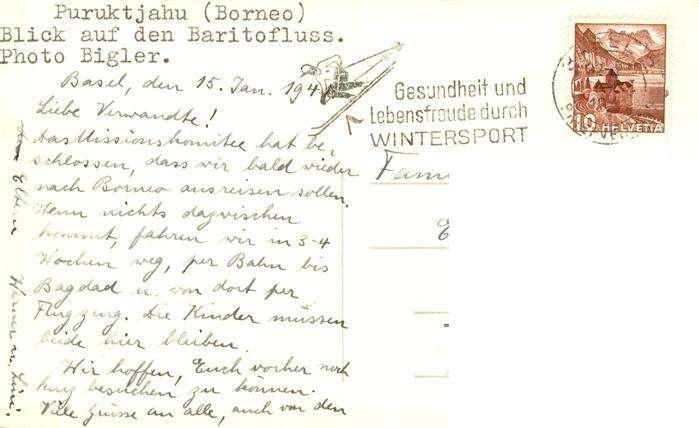 Puruktjahu (Borneo)
Blick auf den Baritofluss.
Photo Bigler.
Basel, den 15. Jan. 194
Liebe Verwandte!
Das Missionskomitee hat be-
schlossen, dass wir bald wieder
nach Borneo ausreisen sollen.
Wenn nichts dazwischen
kommt, fahren wir in 3-4
Wochen weg, per Bahn bis
Bagdad u. von dort per
Flugzeug. Die Kinder müssen
beide hier bleiben.
Wir hoffen, Euch vorher noch
besuchen zu können.
Viele Grüsse an alle, auch von den
Eltern Werner u.
Gesundheit und
Lebensfreude durch
WINTERSPORT
Fam
10 HELVETIA